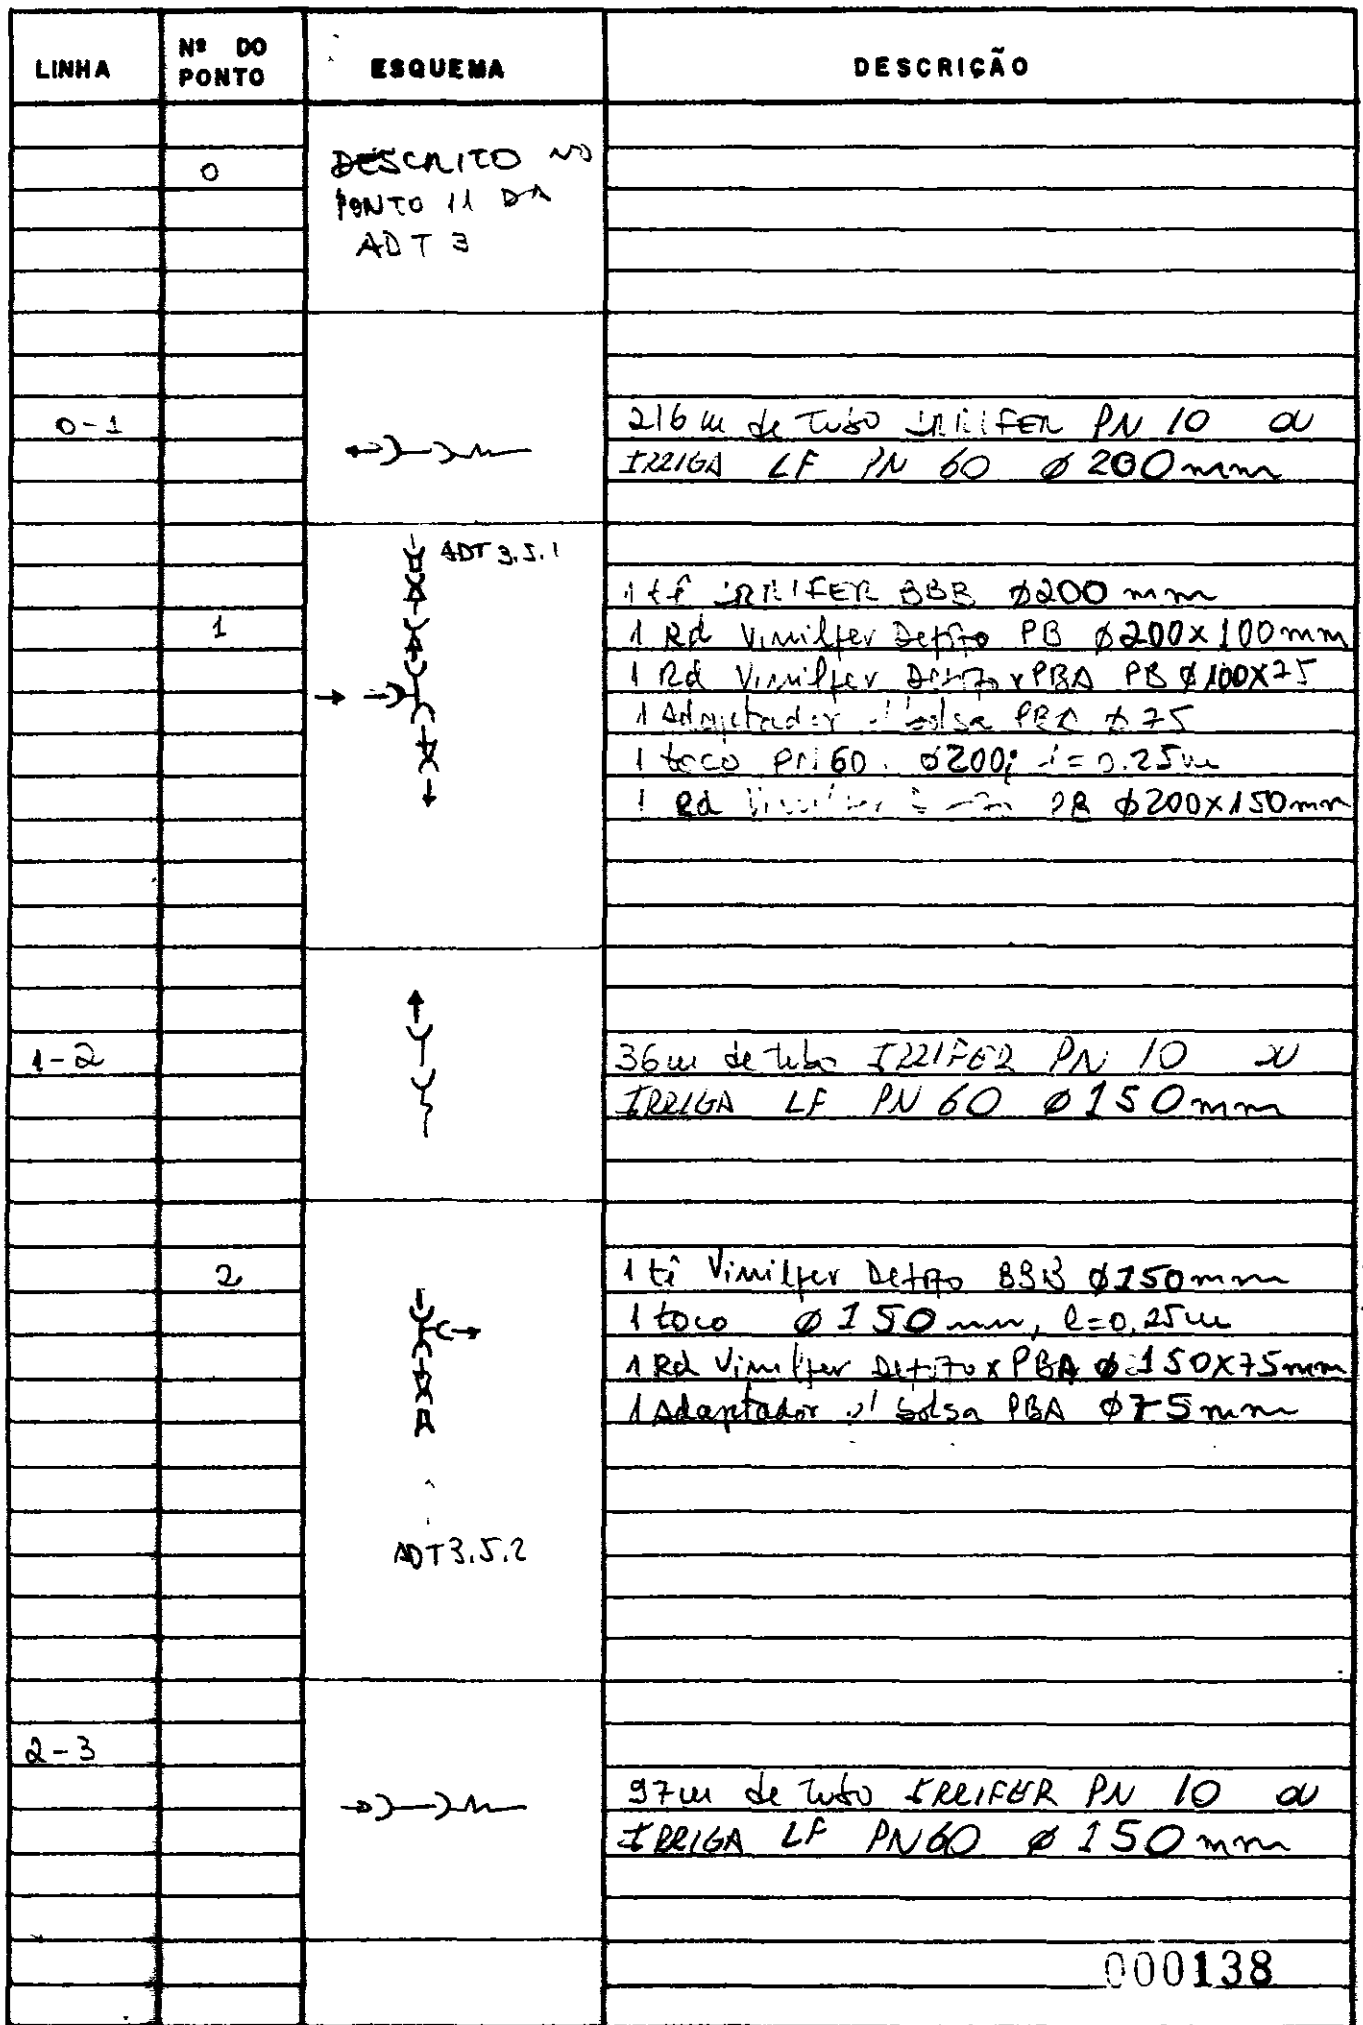 LINHA
Nº DO PONTO
ESQUEMA
DESCRIÇÃO
0
DESCRITO NO
PONTO 11 DA
ADT 3
0-1
216 m de Tubo IRRIFER PN 10 ou
IRRIGA LF PN 60 ø 200 mm
ADT 3.5.1
1
1 tê IRRIFER BBB ø200 mm
1 Rd Vinilfer Defofo PB ø200x100mm
1 Rd Vinilfer Defofo x PBA PB ø100X75
1 Adaptador bolsa PBA ø 75
1 toco PN 60 ø200; l=0.25m
1 Rd Vinilfer PB ø200X150mm
1-2
36m de tubo IRRIFER PN 10 ou
IRRIGA LF PN 60 ø 150mm
2
1 tê Vinilfer Defofo BBB ø150mm
1 toco ø 150 mm, l=0,25m
1 Rd Vinilfer Defofo x PBA ø 150X75mm
1 Adaptador p/ bolsa PBA ø75mm
ADT3.5.2
2-3
97m de Tubo IRRIFER PN 10 ou
IRRIGA LF PN60 ø 150mm
000138